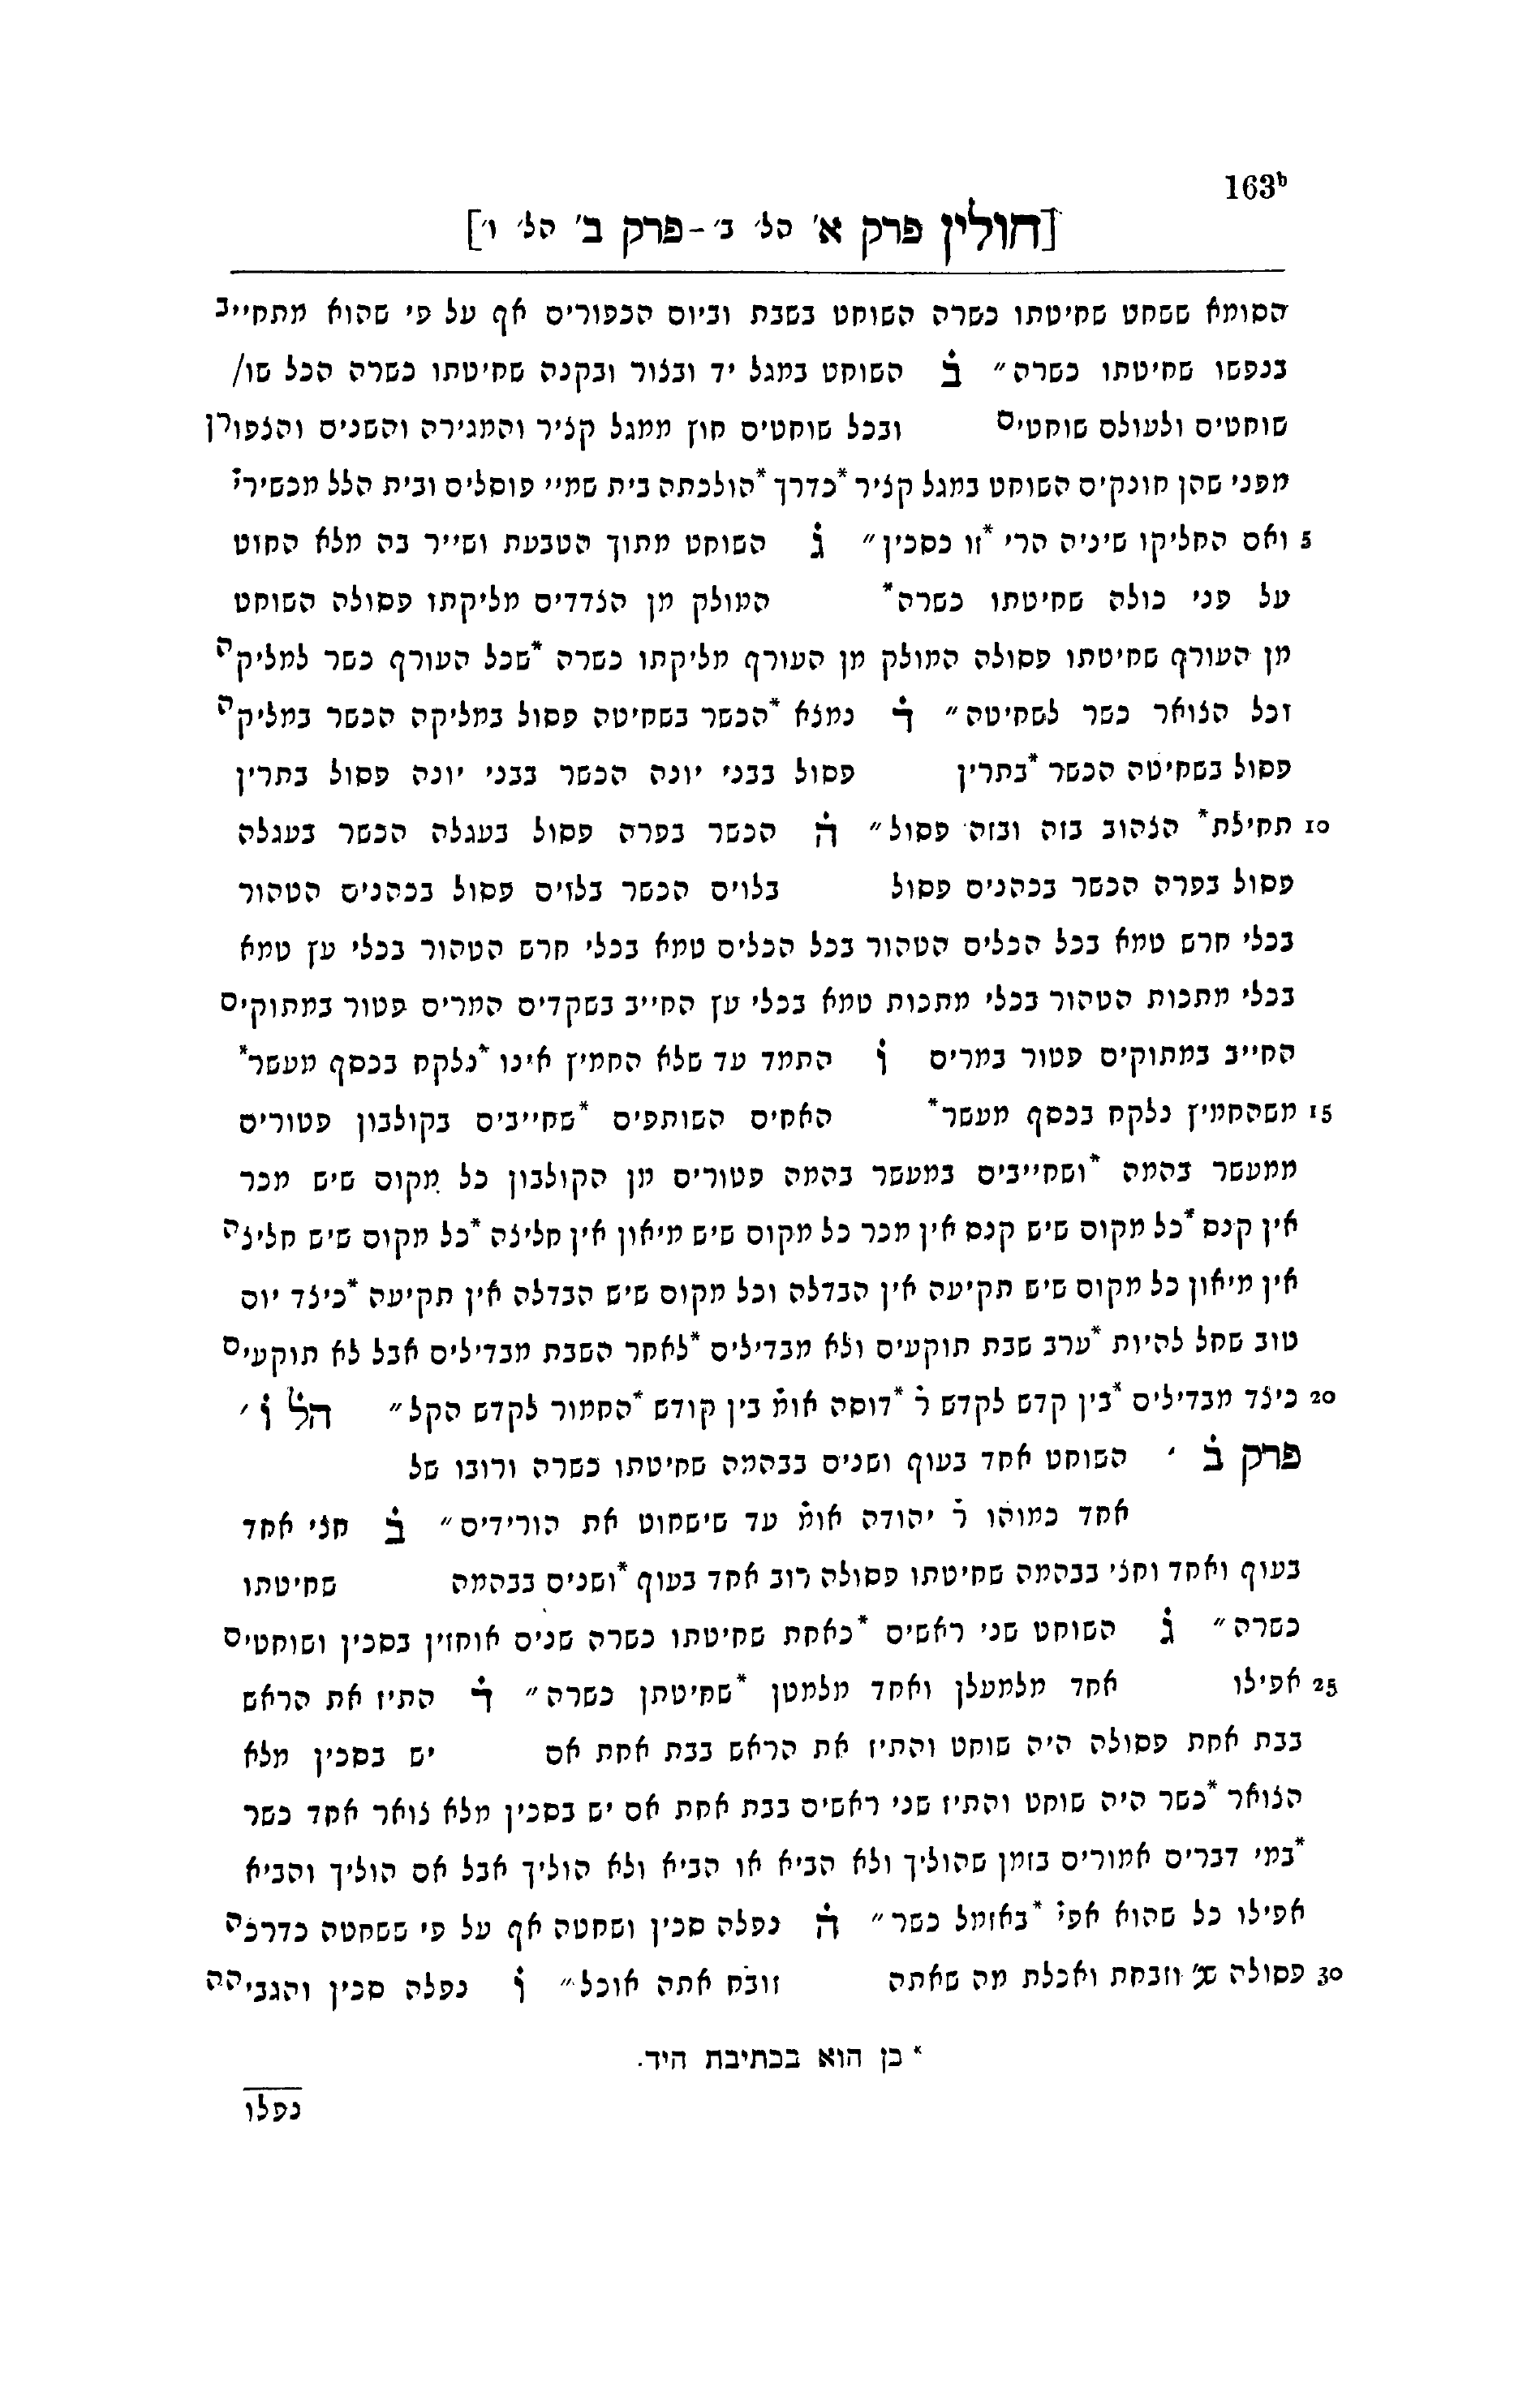 163b
[חולין פרק א' הל' ב'-פרק ב' הל' ו']
הסומא ששחט שחיטתו כשרה השוחט בשבת וביום הכפורים אף על פי שהוא מתחייב
בנפשו שחיטתו כשרה״ ב֗ השוחט במגל יד ובצור ובקנה שחיטתו כשרה הכל שו/
שוחטים ולעולם שוחטים ובכל שוחטים חוץ ממגל קציר והמגירה והשנים והצפורן
מפני שהן חונקים השוחט במגל קציר *כדרך *הולכתה בית שמיי פוסלים ובית הלל מכשירי֗
5 ואם החליקו שיניה הרי *זו כסכין״ ג֗ השוחט מתוך הטבעת ושייר בה מלא החוט
על פני כולה שחיטתו כשרה* המולק מן הצדדים מליקתו פסולה השוחט
מן העורף שחיטתו פסולה המולק מן העורף מליקתו כשרה *שכל העורף כשר למליקה
וכל הצואר כשר לשחיטה״ ד֗ נמצא *הכשר בשחיטה פסול במליקה הכשר במליקה
פסול בשחיטה הכשר *בתרין פסול בבני יונה הכשר בבני יונה פסול בתרין
10 תחילת* הצהוב בזה ובזה פסול״ ה֗ הכשר בפרה פסול בעגלה הכשר בעגלה
פסול בפרה הכשר בכהנים פסול בלוים הכשר בלוים פסול בכהנים הטהור
בכלי חרש טמא בכל הכלים הטהור בכל הכלים טמא בכלי חרש הטהור בכלי עץ טמא
בכלי מתכות הטהור בכלי מתכות טמא בכלי עץ החייב בשקדים המרים פטור במתוקים
החייב במתוקים פטור במרים ו֗ התמד עד שלא החמיץ אינו *נלקח בכסף מעשר*
15 משהחמיץ נלקח בכסף מעשר* האחים השותפים *שחייבים בקולבון פטורים
ממעשר בהמה *ושחייבים במעשר בהמה פטורים מן הקולבון כל מקום שיש מכר
אין קנס *כל מקום שיש קנס אין מכר כל מקום שיש מיאון אין חליצה *כל מקום שיש חליצה
אין מיאון כל מקום שיש תקיעה אין הבדלה וכל מקום שיש הבדלה אין תקיעה *כיצד יום
טוב שחל להיות *ערב שבת תוקעים ולא מבדילים *לאחר השבת מבדילים אבל לא תוקעים
20 כיצד מבדילים *בין קדש לקדש ר֗ *דוסה אומ֗ בין קודש *החמור לקדש הקל״ הל֗ ו֗ ׳
פרק ב֗ ׳ השוחט אחד בעוף ושנים בבהמה שחיטתו כשרה ורובו של
אחד כמוהו ר֗ יהודה אומ֗ עד שישחוט את הורידים״ ב֗ חצי אחד
בעוף ואחד וחצי בבהמה שחיטתו פסולה רוב אחד בעוף *ושנים בבהמה שחיטתו
כשרה״ ג֗ השוחט שני ראשים *כאחת שחיטתו כשרה שנים אוחזין בסכין ושוחטים
25 אפילו אחד מלמעלן ואחד מלמטן *שחיטתן כשרה״ ד֗ התיז את הראש
בבת אחת פסולה היה שוחט והתיז את הראש בבת אחת אם יש בסכין מלא
הצואר *כשר היה שוחט והתיז שני ראשים בבת אחת אם יש בסכין מלא צואר אחד כשר
*במי דברים אמורים בזמן שהוליך ולא הביא או הביא ולא הוליך אבל אם הוליך והביא
אפילו כל שהוא אפי֗ *באזמל כשר״ ה֗ נפלה סכין ושחטה אף על פי ששחטה כדרכה
30 פסולה שנ׳ וזבחת ואכלת מה שאתה זובח אתה אוכל״ ו֗ נפלה סכין והגביהה
* כן הוא בכתיבת היד.
נפלו